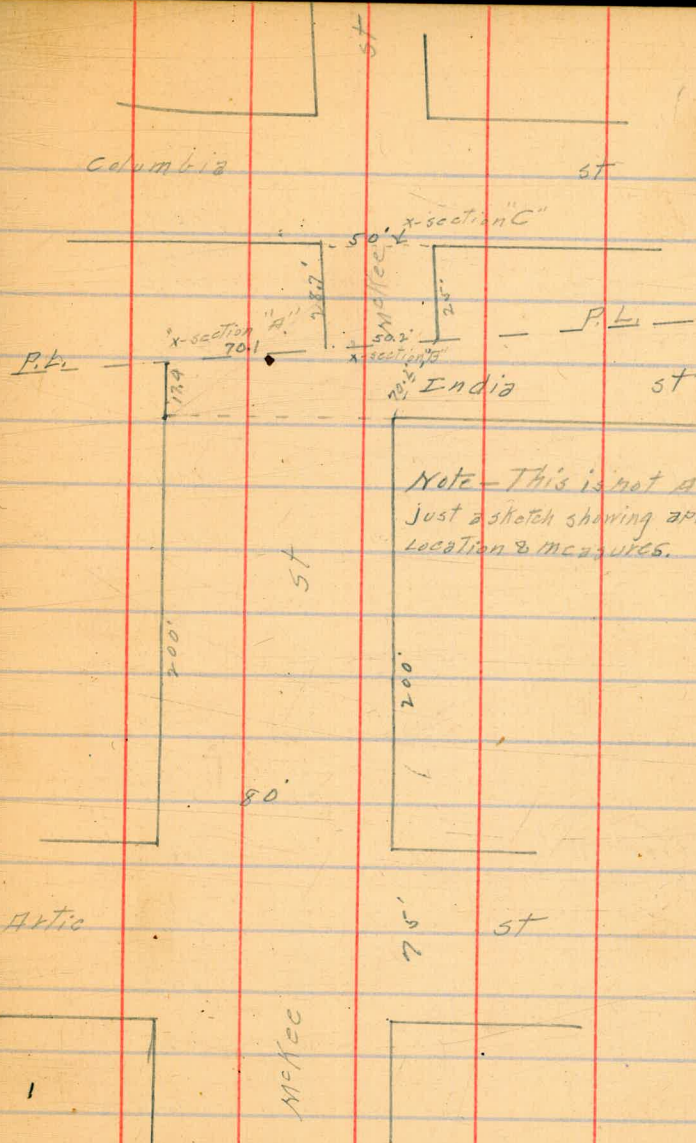 St
Columbia St
x-section "C"
50'
McKee
28.7'
25'
"x-section "A"
70.1
50.2'
P.L.
x-section "B"
P.L.
17.9
70.2'
India St
Note - This is not A
just a sketch showing ap
Location & measures.
St
200'
200'
80'
Artic St
75'
McKee
1